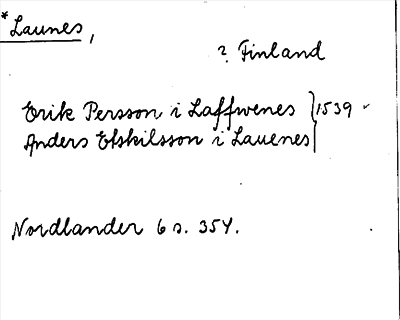 *Launes,
? Finland
Erik Persson i Laffwenes } 1539
Anders Etskilsson i Lauenes
Nordlander 6 s. 354.